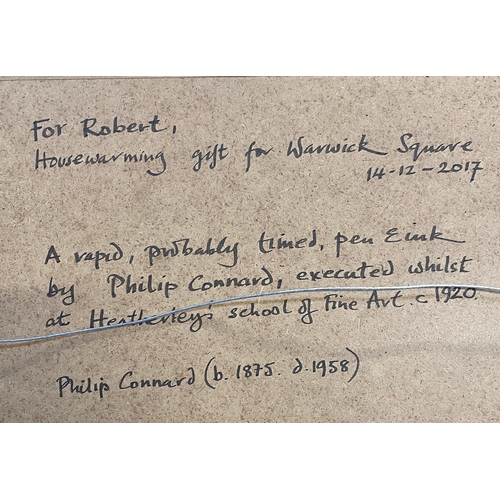 For Robert,
Housewarming gift for Warwick Square
14-12-2017
A rapid, probably timed, pen & ink
by Philip Connard, executed whilst
at Heatherley's school of Fine Art. c 1920.
Philip Connard (b. 1875. d. 1958)